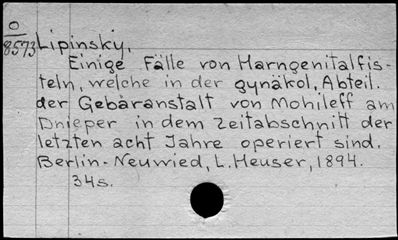 O
8573
Lipinsky,
Einige Fälle von Harngenitalfis-
teln, welche in der gynäkol. Abteil.
der Gebäranstalt von Mohileff am
Dnieper in dem Zeitabschnitt der
letzten acht Jahre operiert sind.
Berlin-Neuwied, L. Heuser, 1894.
34s.